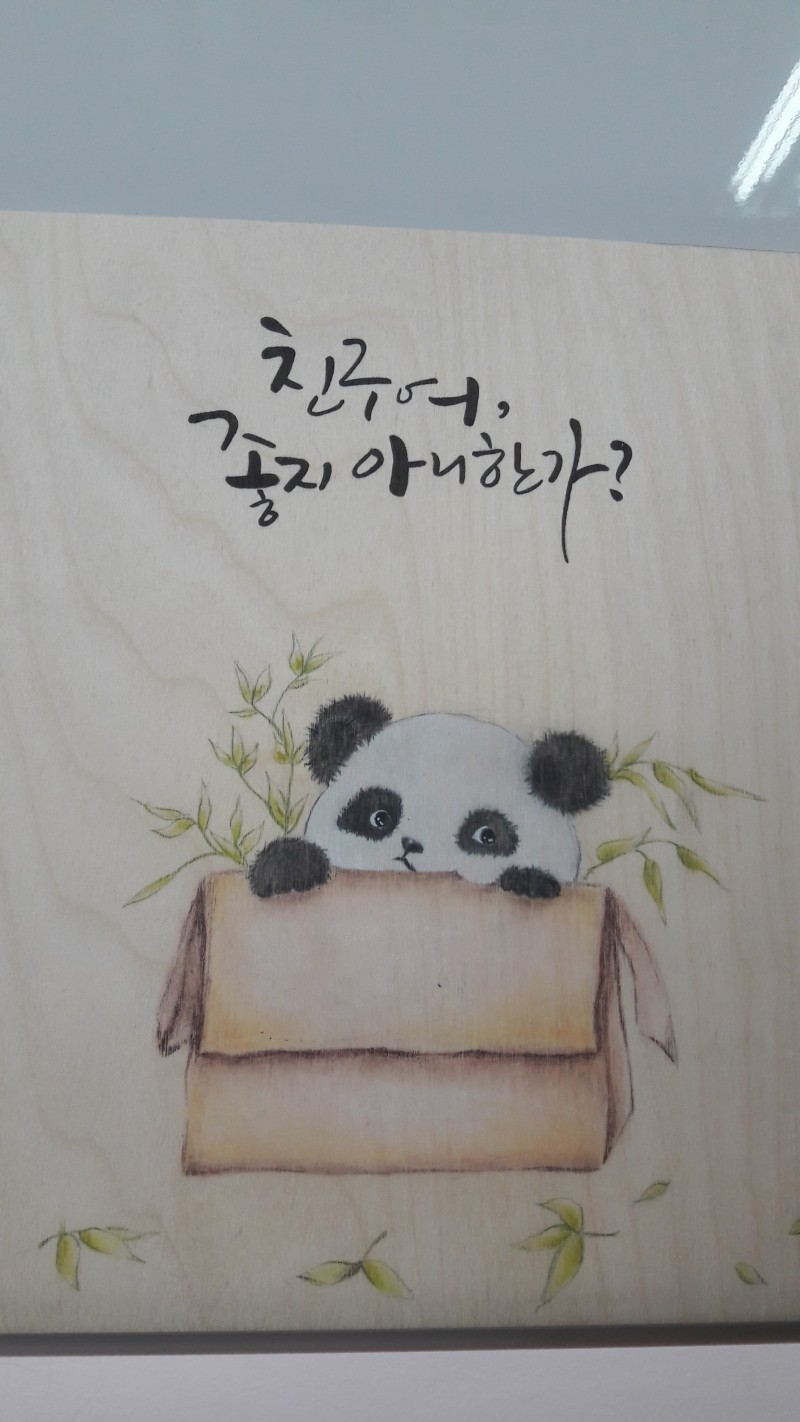 친구여,
좋지 아니한가?